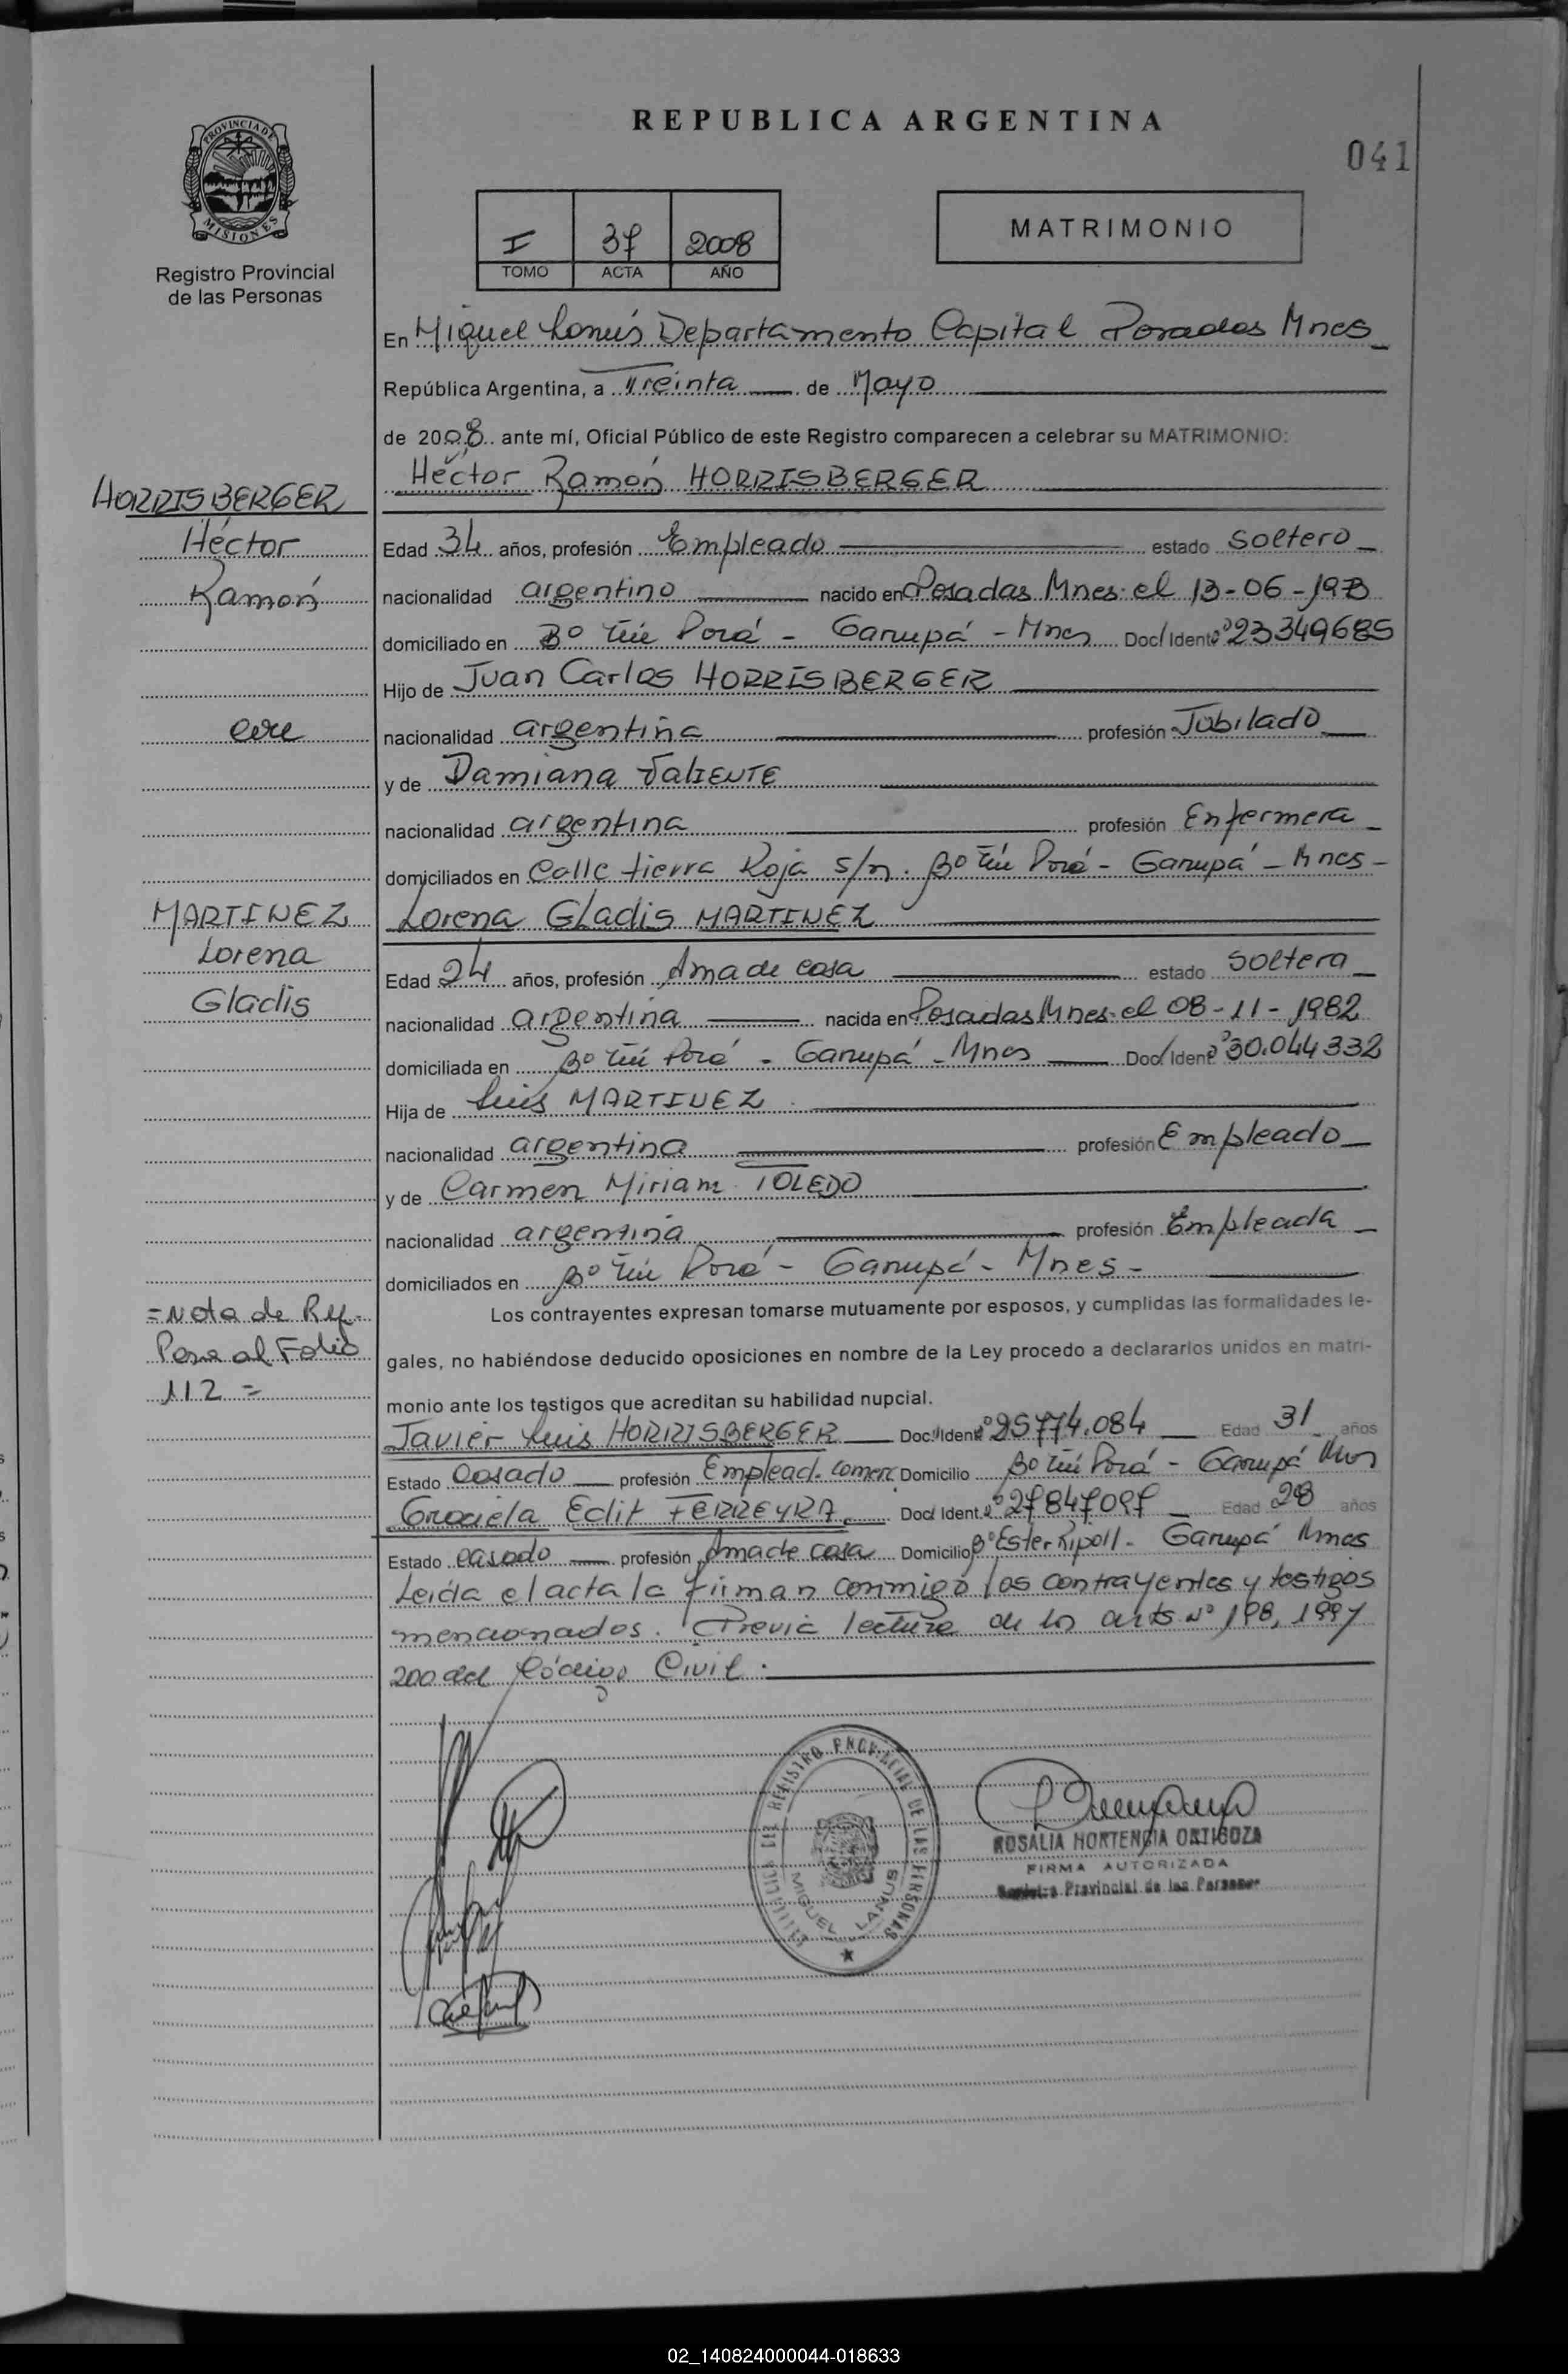 REPUBLICA ARGENTINA
041
PROVINCIA DE
MISIONES
Registro Provincial
de las Personas
I 37 2008
TOMO ACTA AÑO
MATRIMONIO
En Miguel Lanús Departamento Capital Posadas Mnes
República Argentina, a Treinta de Mayo
de 2008 ante mí, Oficial Público de este Registro comparecen a celebrar su MATRIMONIO:
Héctor Ramón HORRISBERGER
HORRISBERGER
Héctor
Ramón
Edad 34 años, profesión Empleado estado Soltero
nacionalidad argentino nacido en Posadas Mnes. el 13-06-1973
domiciliado en Bº Ñú Porá - Garupá - Mnes Doc/Ident. º 23349685
Hijo de Juan Carlos HORRISBERGER
nacionalidad argentina profesión Jubilado
y de Damiana VALIENTE
nacionalidad argentina profesión Enfermera
domiciliados en Calle tierra Roja s/n. Bº Ñú Porá - Garupá - Mnes -
Lorena Gladis MARTINEZ
MARTINEZ
Lorena
Gladis
Edad 24 años, profesión Ama de casa estado Soltera
nacionalidad argentina nacida en Posadas Mnes. el 08-11-1982
domiciliada en Bº Ñú Porá - Garupá - Mnes Doc/Ident. º 30.044332
Hija de Luis MARTINEZ
nacionalidad argentina profesión Empleado
y de Carmen Miriam TOLEDO
nacionalidad argentina profesión Empleada
domiciliados en Bº Ñú Porá - Garupá - Mnes -
Los contrayentes expresan tomarse mutuamente por esposos, y cumplidas las formalidades le-
gales, no habiéndose deducido oposiciones en nombre de la Ley procedo a declararlos unidos en matri-
monio ante los testigos que acreditan su habilidad nupcial.
= Nota de Ref.
Pasa al Folio
112 =
Javier Luis HORRISBERGER Doc./Ident. º 25774.084 Edad 31 años
Estado Casado profesión Emplead. comerc. Domicilio Bº Ñú Porá - Garupá Mnes
Graciela Edit FERREYRA Doc/Ident. º 27847097 Edad 28 años
Estado Casado profesión Ama de casa Domicilio Bº Ester Ripoll - Garupá Mnes
Leída el acta la firman conmigo los contrayentes y testigos
mencionados. Previa lectura de los arts Nº 198, 199 y
200 del Código Civil.
REGISTRO PROVINCIAL DE LAS PERSONAS
MIGUEL LANUS
ROSALIA HORTENCIA ORTIGOZA
FIRMA AUTORIZADA
Registro Provincial de las Personas
02_140824000044-018633